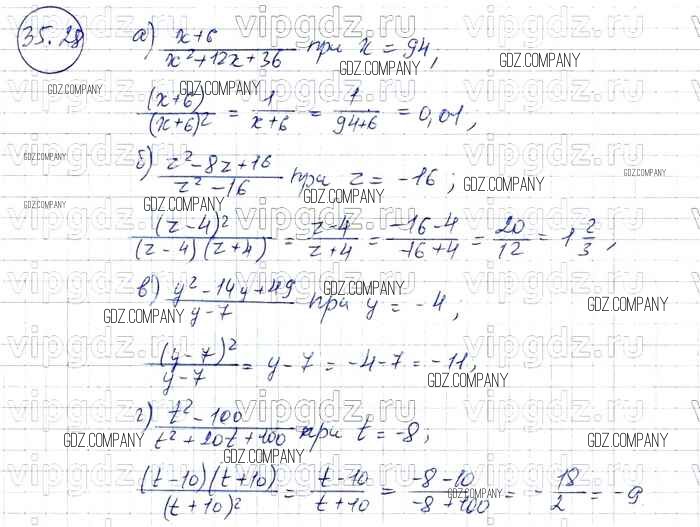 35.28
а) (x+6)/(x²+12x+36) при x = 94;
(x+6)/(x+6)² = 1/(x+6) = 1/(94+6) = 0,01,
б) (z²-8z+16)/(z²-16) при z = -16;
(z-4)²/((z-4)(z+4)) = (z-4)/(z+4) = (-16-4)/(-16+4) = 20/12 = 1 2/3,
в) (y²-14y+49)/(y-7) при y = -4;
(y-7)²/(y-7) = y-7 = -4-7 = -11,
г) (t²-100)/(t²+20t+100) при t = -8;
((t-10)(t+10))/(t+10)² = (t-10)/(t+10) = (-8-10)/(-8+100) = -18/2 = -9
vipgdz.ru
GDZ.COMPANY